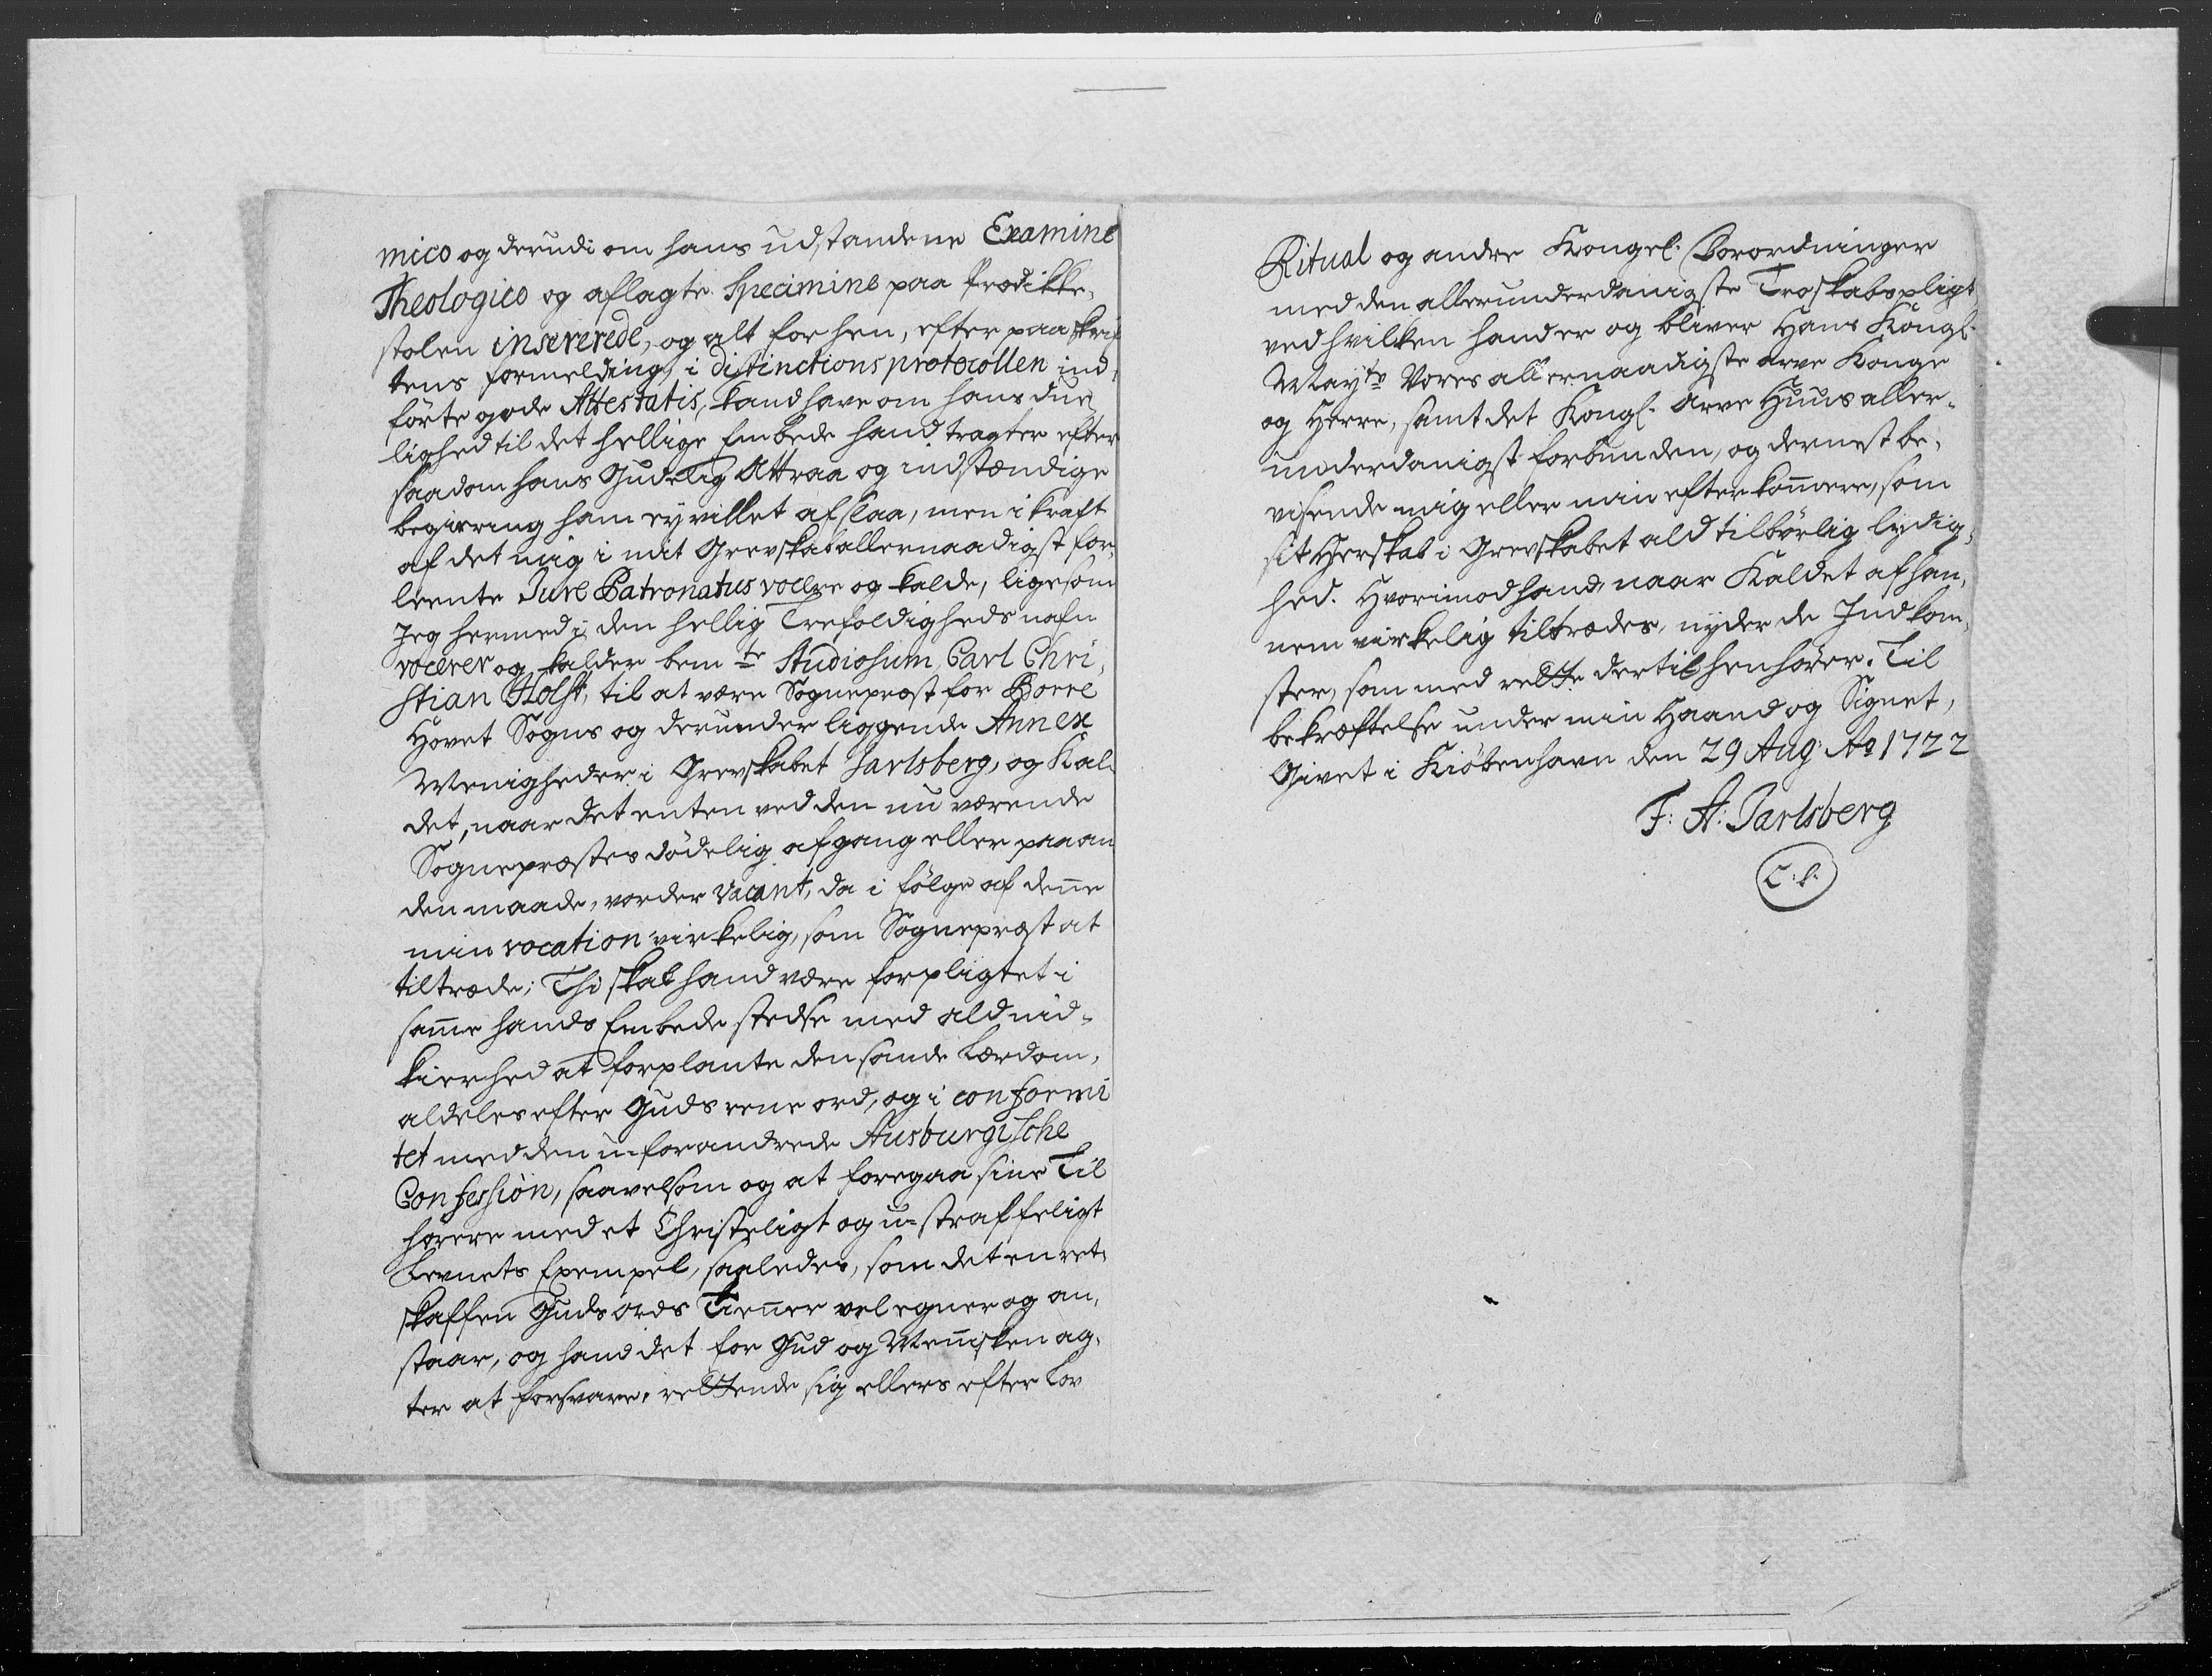 mico og derudi om hans udstandene Examine
Theologico og aflagte Specimine paa Prædikke,
stolen insererede, og alt forhen, efter paaskrif
tens formelding, i distinctionsprotocollen ind,
förte gode Attestatis, kand have om hans due,
lighed til det hellige Embede hand tragter efter
saadom hans Gudelig Attraa og indstændige
begiering ham ey villet afslaa, men i kraft
af det mig i mit Grevskab allernaadigst for,
leente Jure Patronatus vocere og kalde, ligesom
Jeg hermed i den hellig Trefoldigheds nafn
vocerer og kalder bemte Studiosum Carl Chri,
stian Holst, til at være Sognepræst for Borre
Hovet Sogns og derunder liggende Annex
Menigheder i Grevskabet Jarlsberg, og Kal,
det, naar det enten ved den nu værende
Sognepræstes dödelig afgang eller paa an
den maade, vorder vacant, da i fölge af denne
min vocation virkelig, som Sognepræst at
tiltræde; Thi skal hand være forpligtet i
samme hands Embede stedse med ald nid,
kierhed at forplante den sande Lærdom,
aldeles efter Guds rene ord, og i conformi
tet med den u-forandrede Ausburgische
Confession, saavelsom og at foregaa sine Til
hörere med et Christeligt og u-straffeligt
Levnets Exempel, saaledes, som det en ret,
skaffen Guds Ords Tienner vel egner og an,
staar, og hand det for Gud og Mennisken ag,
ter at forsvare, rettende sig ellers efter Lov
Ritual og andre Kongel. Forordninger
med den allerunderdanigste Troskabspligt
ved hvilken hand er og bliver Hans Kongl.
Mayts Vores allernaadigste Arve Konge
og Herre, samt det Kongl. Arve Huus aller,
underdanigst forbunden, og dernest be,
visende mig eller min efterkommere, som
sit Herskab i Grevskabet ald tilbörlig lydig,
hed. Hvorimod hand, naar Kaldet af han,
nem virkelig tiltrædes, nyder de Indkom,
ster, som med rette dertil henhörer. Til
bekræftelse under min Haand og Signet,
Givet i Kiöbenhavn den 29 Aug: Ao 1722
F: A: Jarlsberg